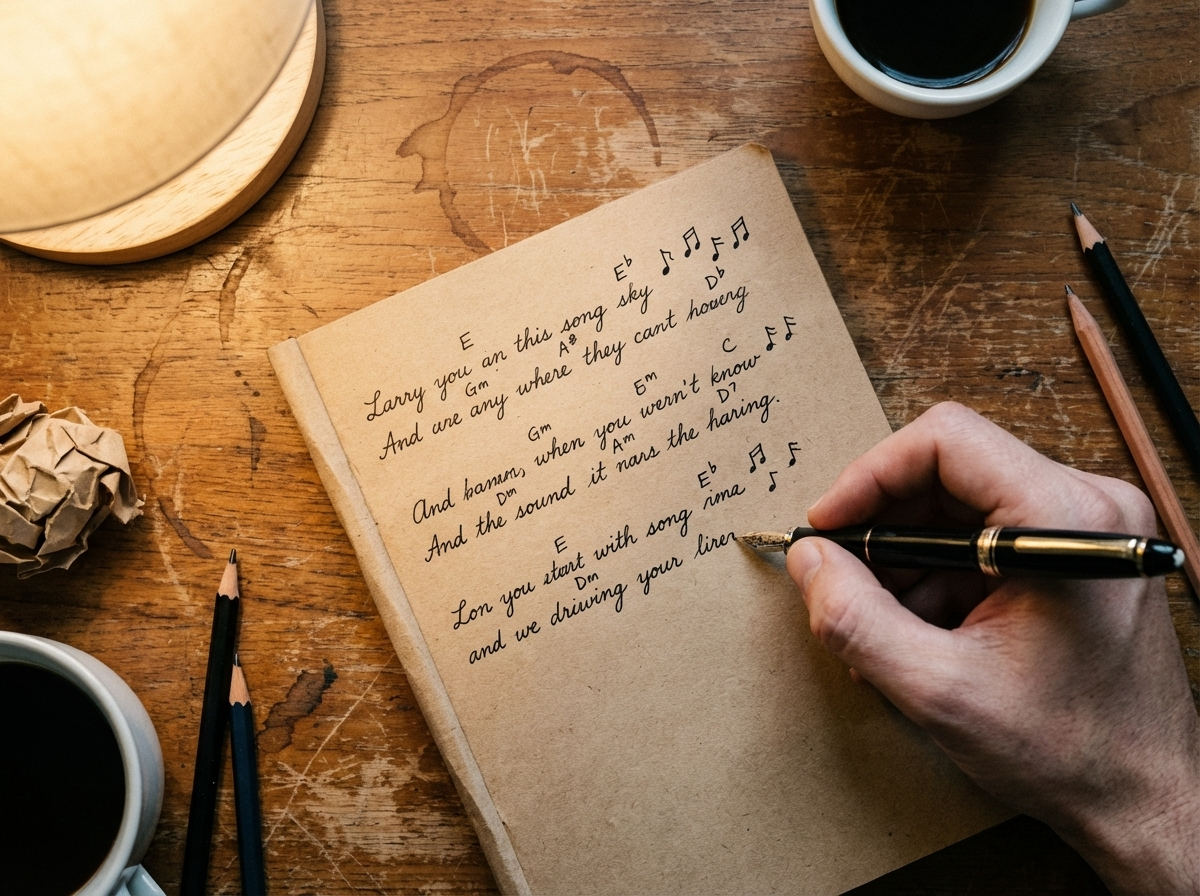 E E♭
Larry you an this song sky
Gm A D♭
And are any where they cant
Gm Em C
And when you wern't know
Dm Am D7
And the sound it nars the haring.
E E♭
Lon you start with song rima
Dm
and we driwing your liren